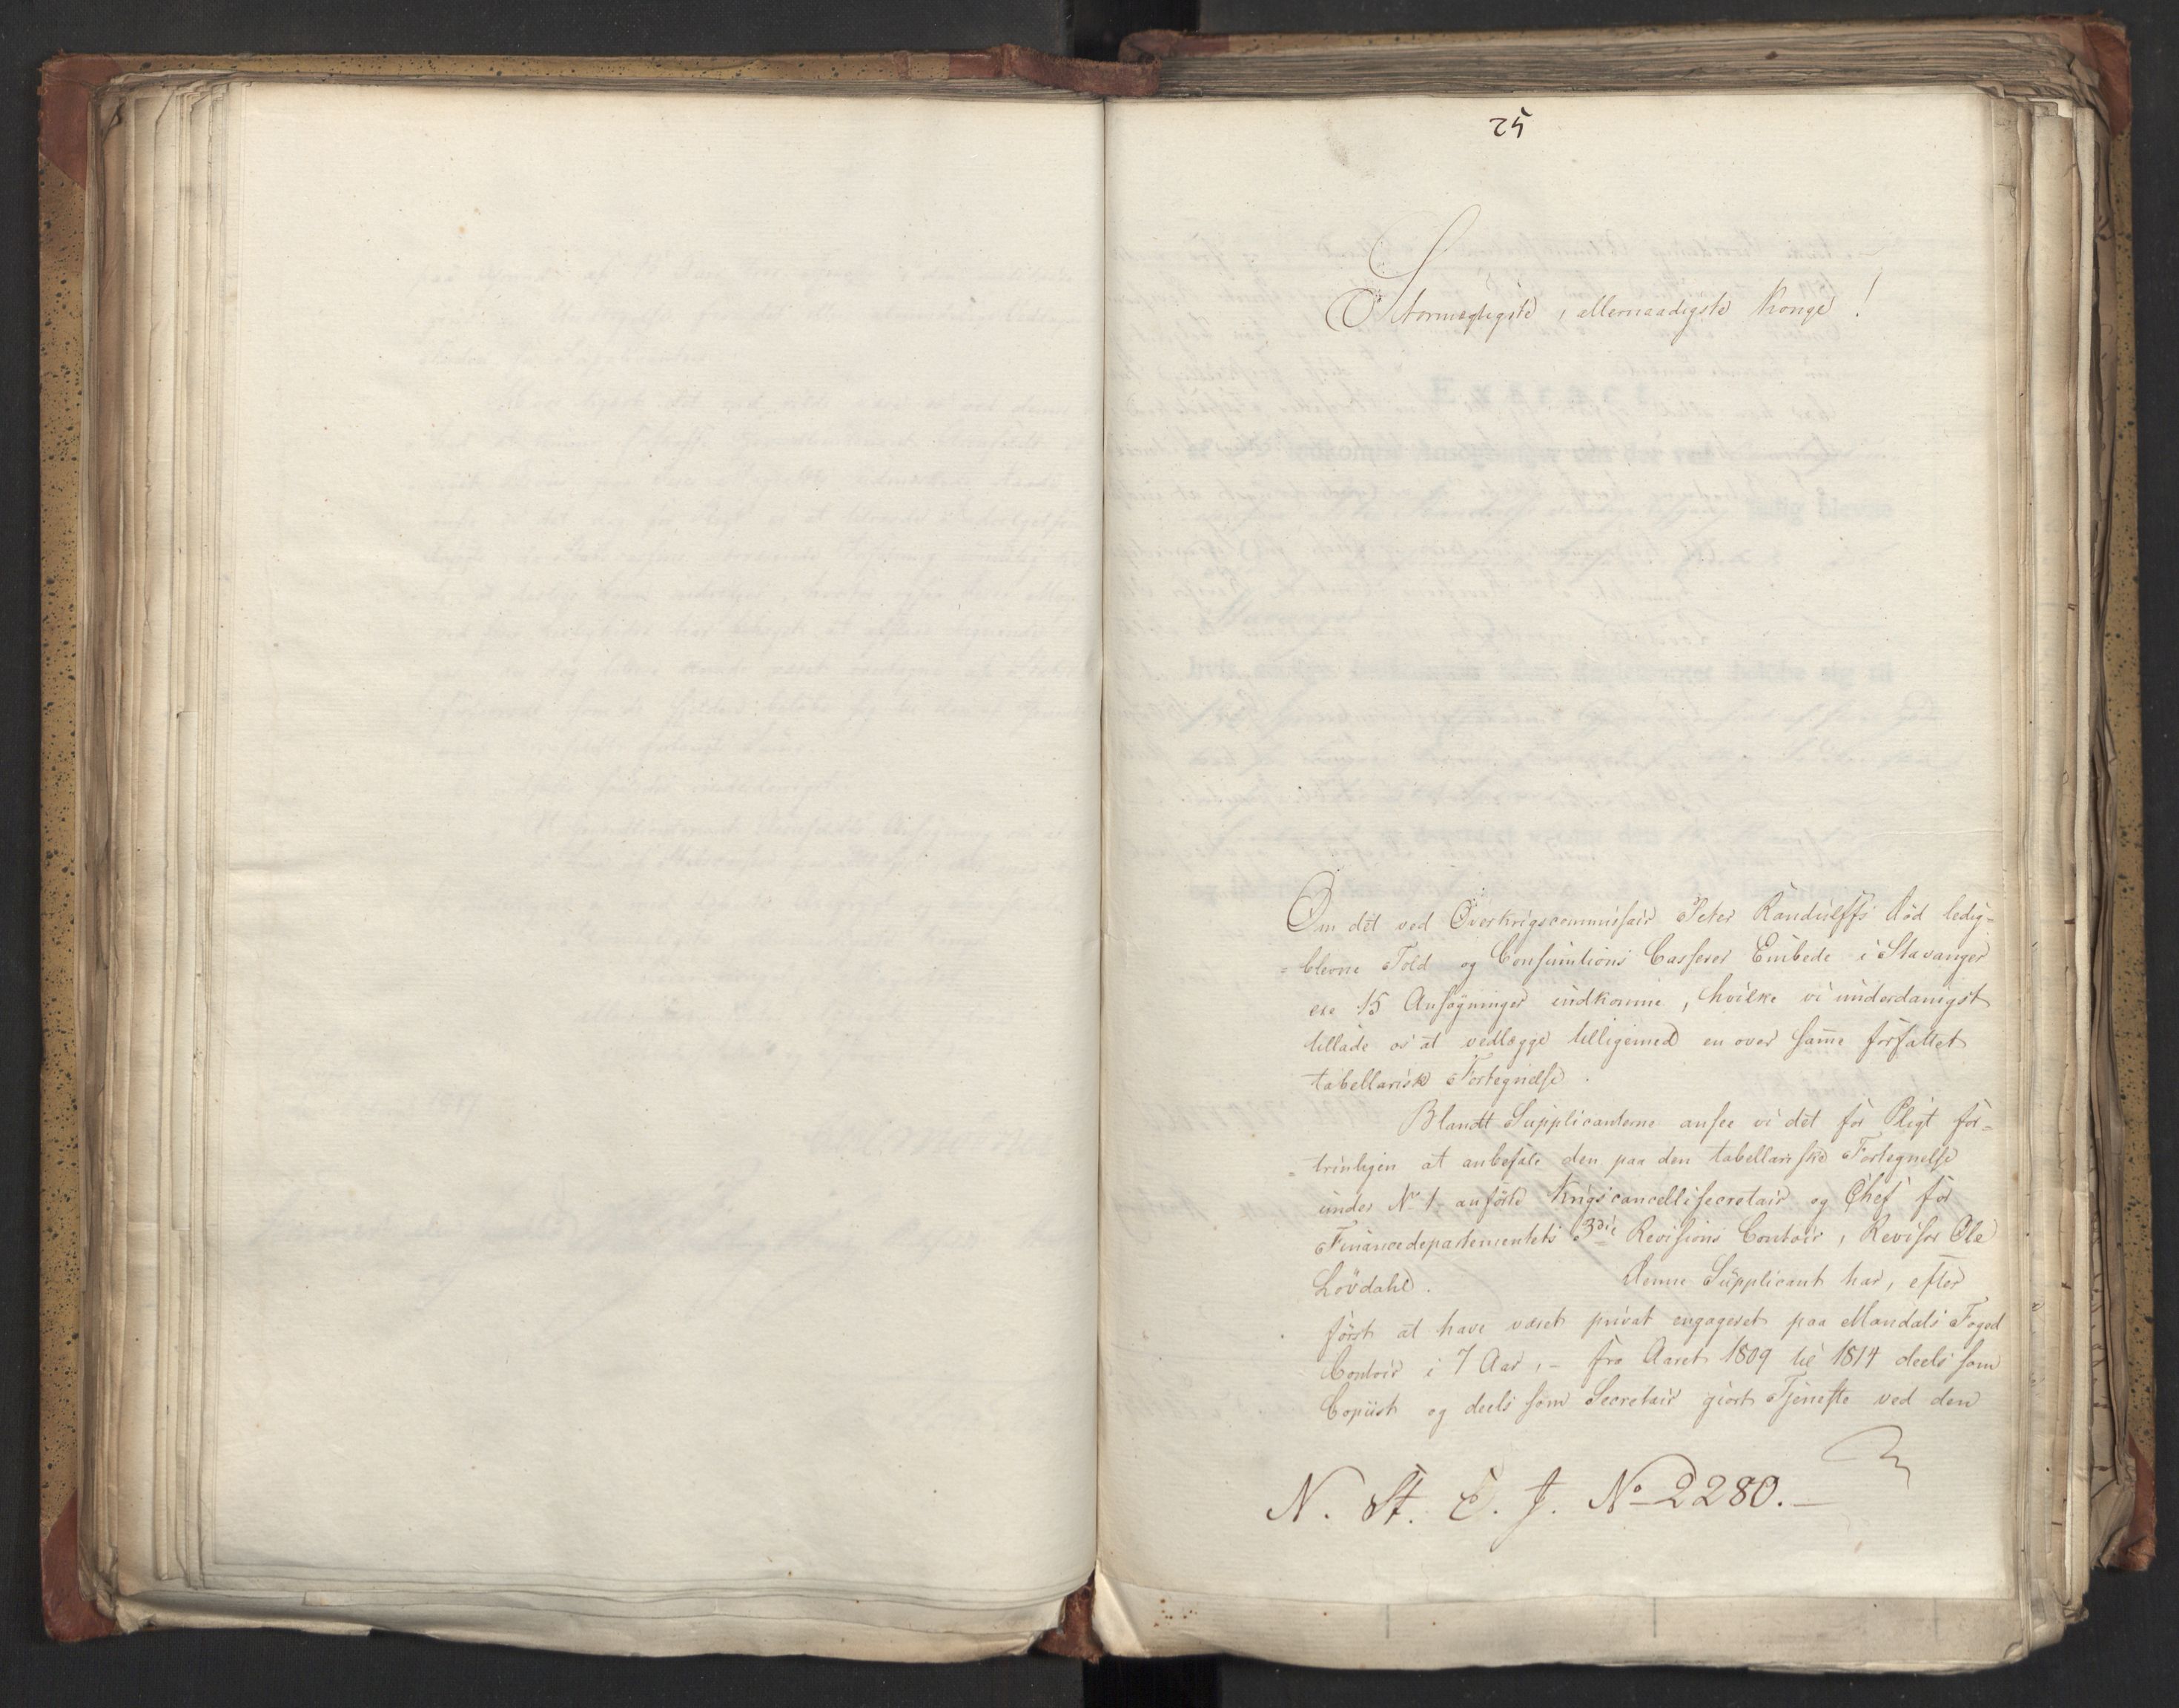 25
Stormægtigste, allernaadigste Konge!
Om det ved Overkrigscommissair Peter Randulffs Död ledig-
-blevne Told og Consumtions Casserer Embede i Stavanger
ere 15 Ansøgninger indkomne, hvilke vi underdanigst
tillade os at vedlægge tilligemed en over samme forfattet
tabellarisk Fortegnelse.
Blandt Supplicanterne ansee vi det for Pligt for-
-trinligen at anbefale den paa den tabellariske Fortegnelse
under No 1 anförte Krigscancellisecretair og Chef for
Financedepartementets 3die Revisions Contoir, Revisor Ole
Lövdahl. Denne Supplicant har, efter
först at have været privat engageret paa Mandals Foged
Contoir i 7 Aar, - fra Aaret 1809 til 1814 deels som
Copiist og deels som Secretair giort Tjeneste ved den
N. St. E. J. No 2280.-